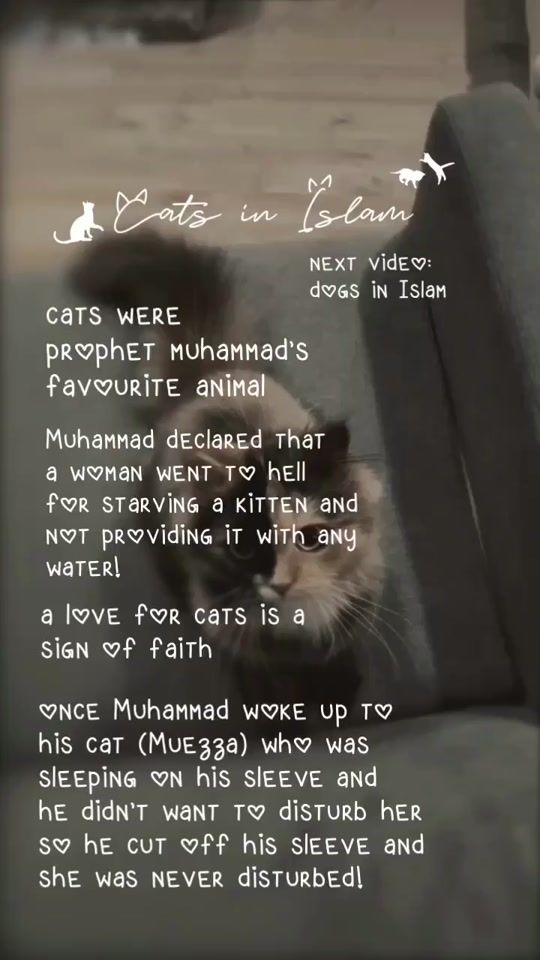 Cats in Islam
NEXT video:
dogs in Islam
cats were
prophet muhammad's
favourite animal
Muhammad declared that
a woman went to hell
for starving a kitten and
not providing it with any
water!
a love for cats is a
sign of faith
once Muhammad woke up to
his cat (Muezza) who was
sleeping on his sleeve and
he didn't want to disturb her
so he cut off his sleeve and
she was never disturbed!